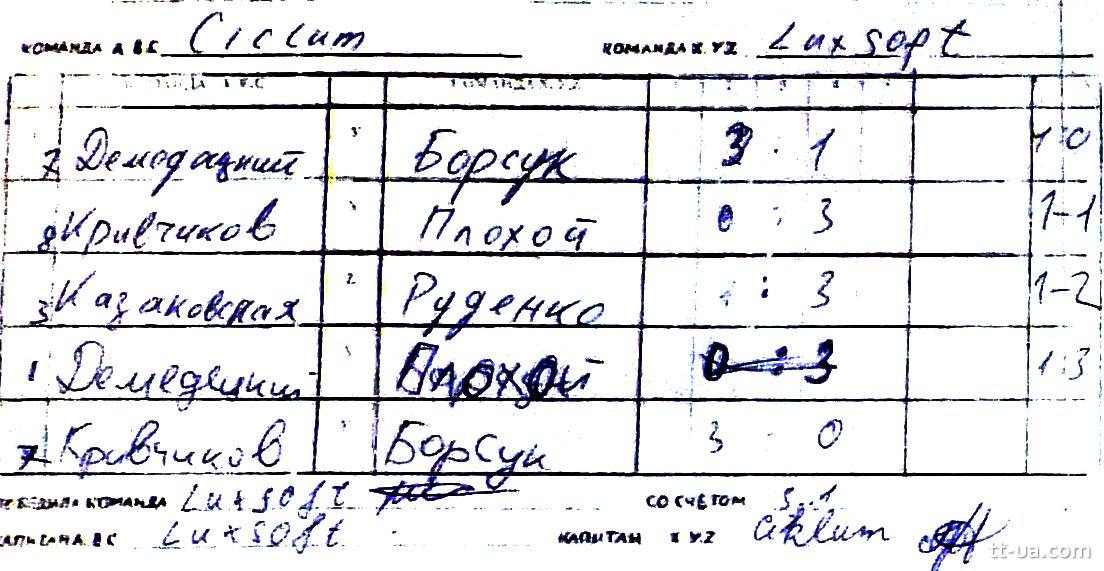 КОМАНДА А В С Ciclum КОМАНДА X Y Z Luxsoft
КОМАНДА X Y Z
Демодацкий Борсук 3 : 1 1:0
8 Кривчиков Плохой 0 : 3 1-1
3 Казаковская 2 Руденко 1 : 3 1-2
1 Демедецкий Плохой 0 : 3 1:3
Кривчиков Борсук 3 : 0
ПОБЕДИЛА КОМАНДА Luxsoft СО СЧЕТОМ 3:1
Luxsoft КАПИТАН X Y Z Ciklum
tt-ua.com